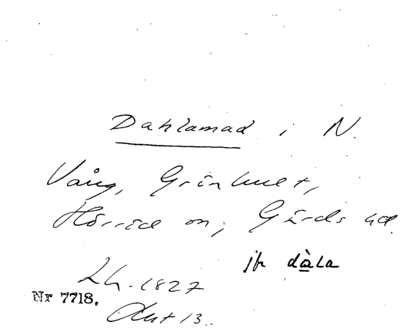 Dahlamad i N.
Vång, Grinhuset,
Hörröd sn; Gärds hd.
jfr dàla
Lh. 1827
Nr 7718.
Akt 13.